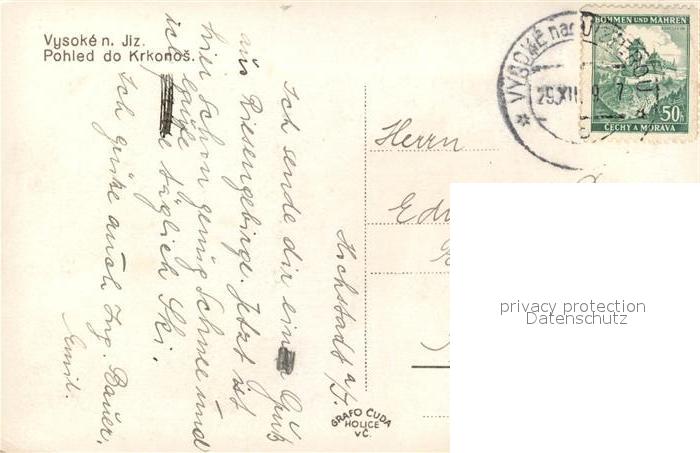 Vysoké n. Jiz.
Pohled do Krkonoš.
Ich sende dir einen Gruß
aus Riesengebirge. Jetzt ist
hier schon genug Schnee und
ich
täglich Ski.
Ich grüße auch Ing. Bauer.
Emil.
Hochstadt a/J.
GRAFO ČUDA
HOLICE
V Č.
VYSOKÉ nad
29.XII
BÖHMEN UND MÄHREN
50h
ČECHY A MORAVA
Herrn
privacy protection
Datenschutz